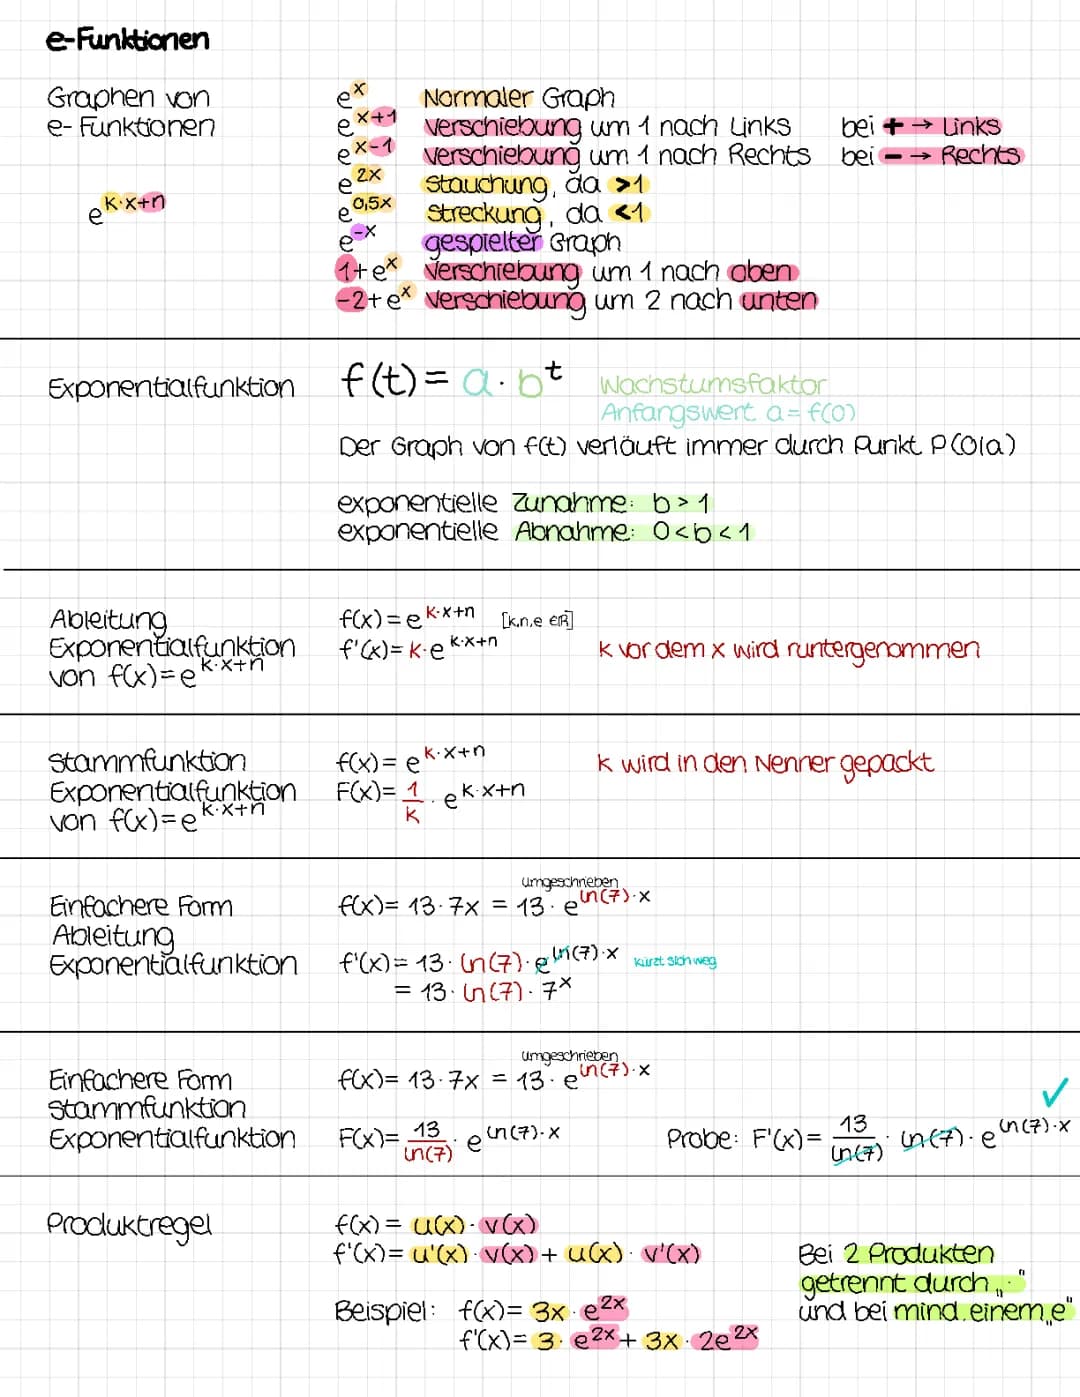 e-Funktionen
Graphen von
e-Funktionen
e^k·x+n
e^x Normaler Graph
e^x+1 Verschiebung um 1 nach Links bei + → Links
e^x-1 Verschiebung um 1 nach Rechts bei - → Rechts
e^2x Stauchung, da >1
e^0,5x Streckung, da <1
e^-x gespielter Graph
1+e^x Verschiebung um 1 nach oben
-2+e^x Verschiebung um 2 nach unten
Exponentialfunktion f(t) = a · b^t Wachstumsfaktor
Anfangswert a = f(0)
Der Graph von f(t) verläuft immer durch Punkt P(0|a)
exponentielle Zunahme: b > 1
exponentielle Abnahme: 0 < b < 1
Ableitung
Exponentialfunktion
von f(x)=e^k·x+n
f(x) = e^k·x+n [k,n,e ∈ℝ]
f'(x) = k·e^k·x+n k vor dem x wird runtergenommen
Stammfunktion
Exponentialfunktion
von f(x)=e^k·x+n
f(x) = e^k·x+n k wird in den Nenner gepackt
F(x) = 1/k · e^k·x+n
Einfachere Form
Ableitung
Exponentialfunktion
umgeschrieben
f(x) = 13·7x = 13·e^ln(7)·x
f'(x) = 13·ln(7)·e^ln(7)·x kürzt sich weg
= 13·ln(7)·7^x
Einfachere Form
Stammfunktion
Exponentialfunktion
umgeschrieben
f(x) = 13·7x = 13·e^ln(7)·x
✓
F(x) = 13/ln(7) · e^ln(7)·x Probe: F'(x) = 13/ln(7) · ln(7)·e^ln(7)·x
Produktregel
f(x) = u(x)·v(x)
f'(x) = u'(x)·v(x) + u(x)·v'(x)
Beispiel: f(x) = 3x·e^2x
f'(x) = 3·e^2x + 3x·2e^2x
Bei 2 Produkten
getrennt durch „·"
und bei mind. einem „e"